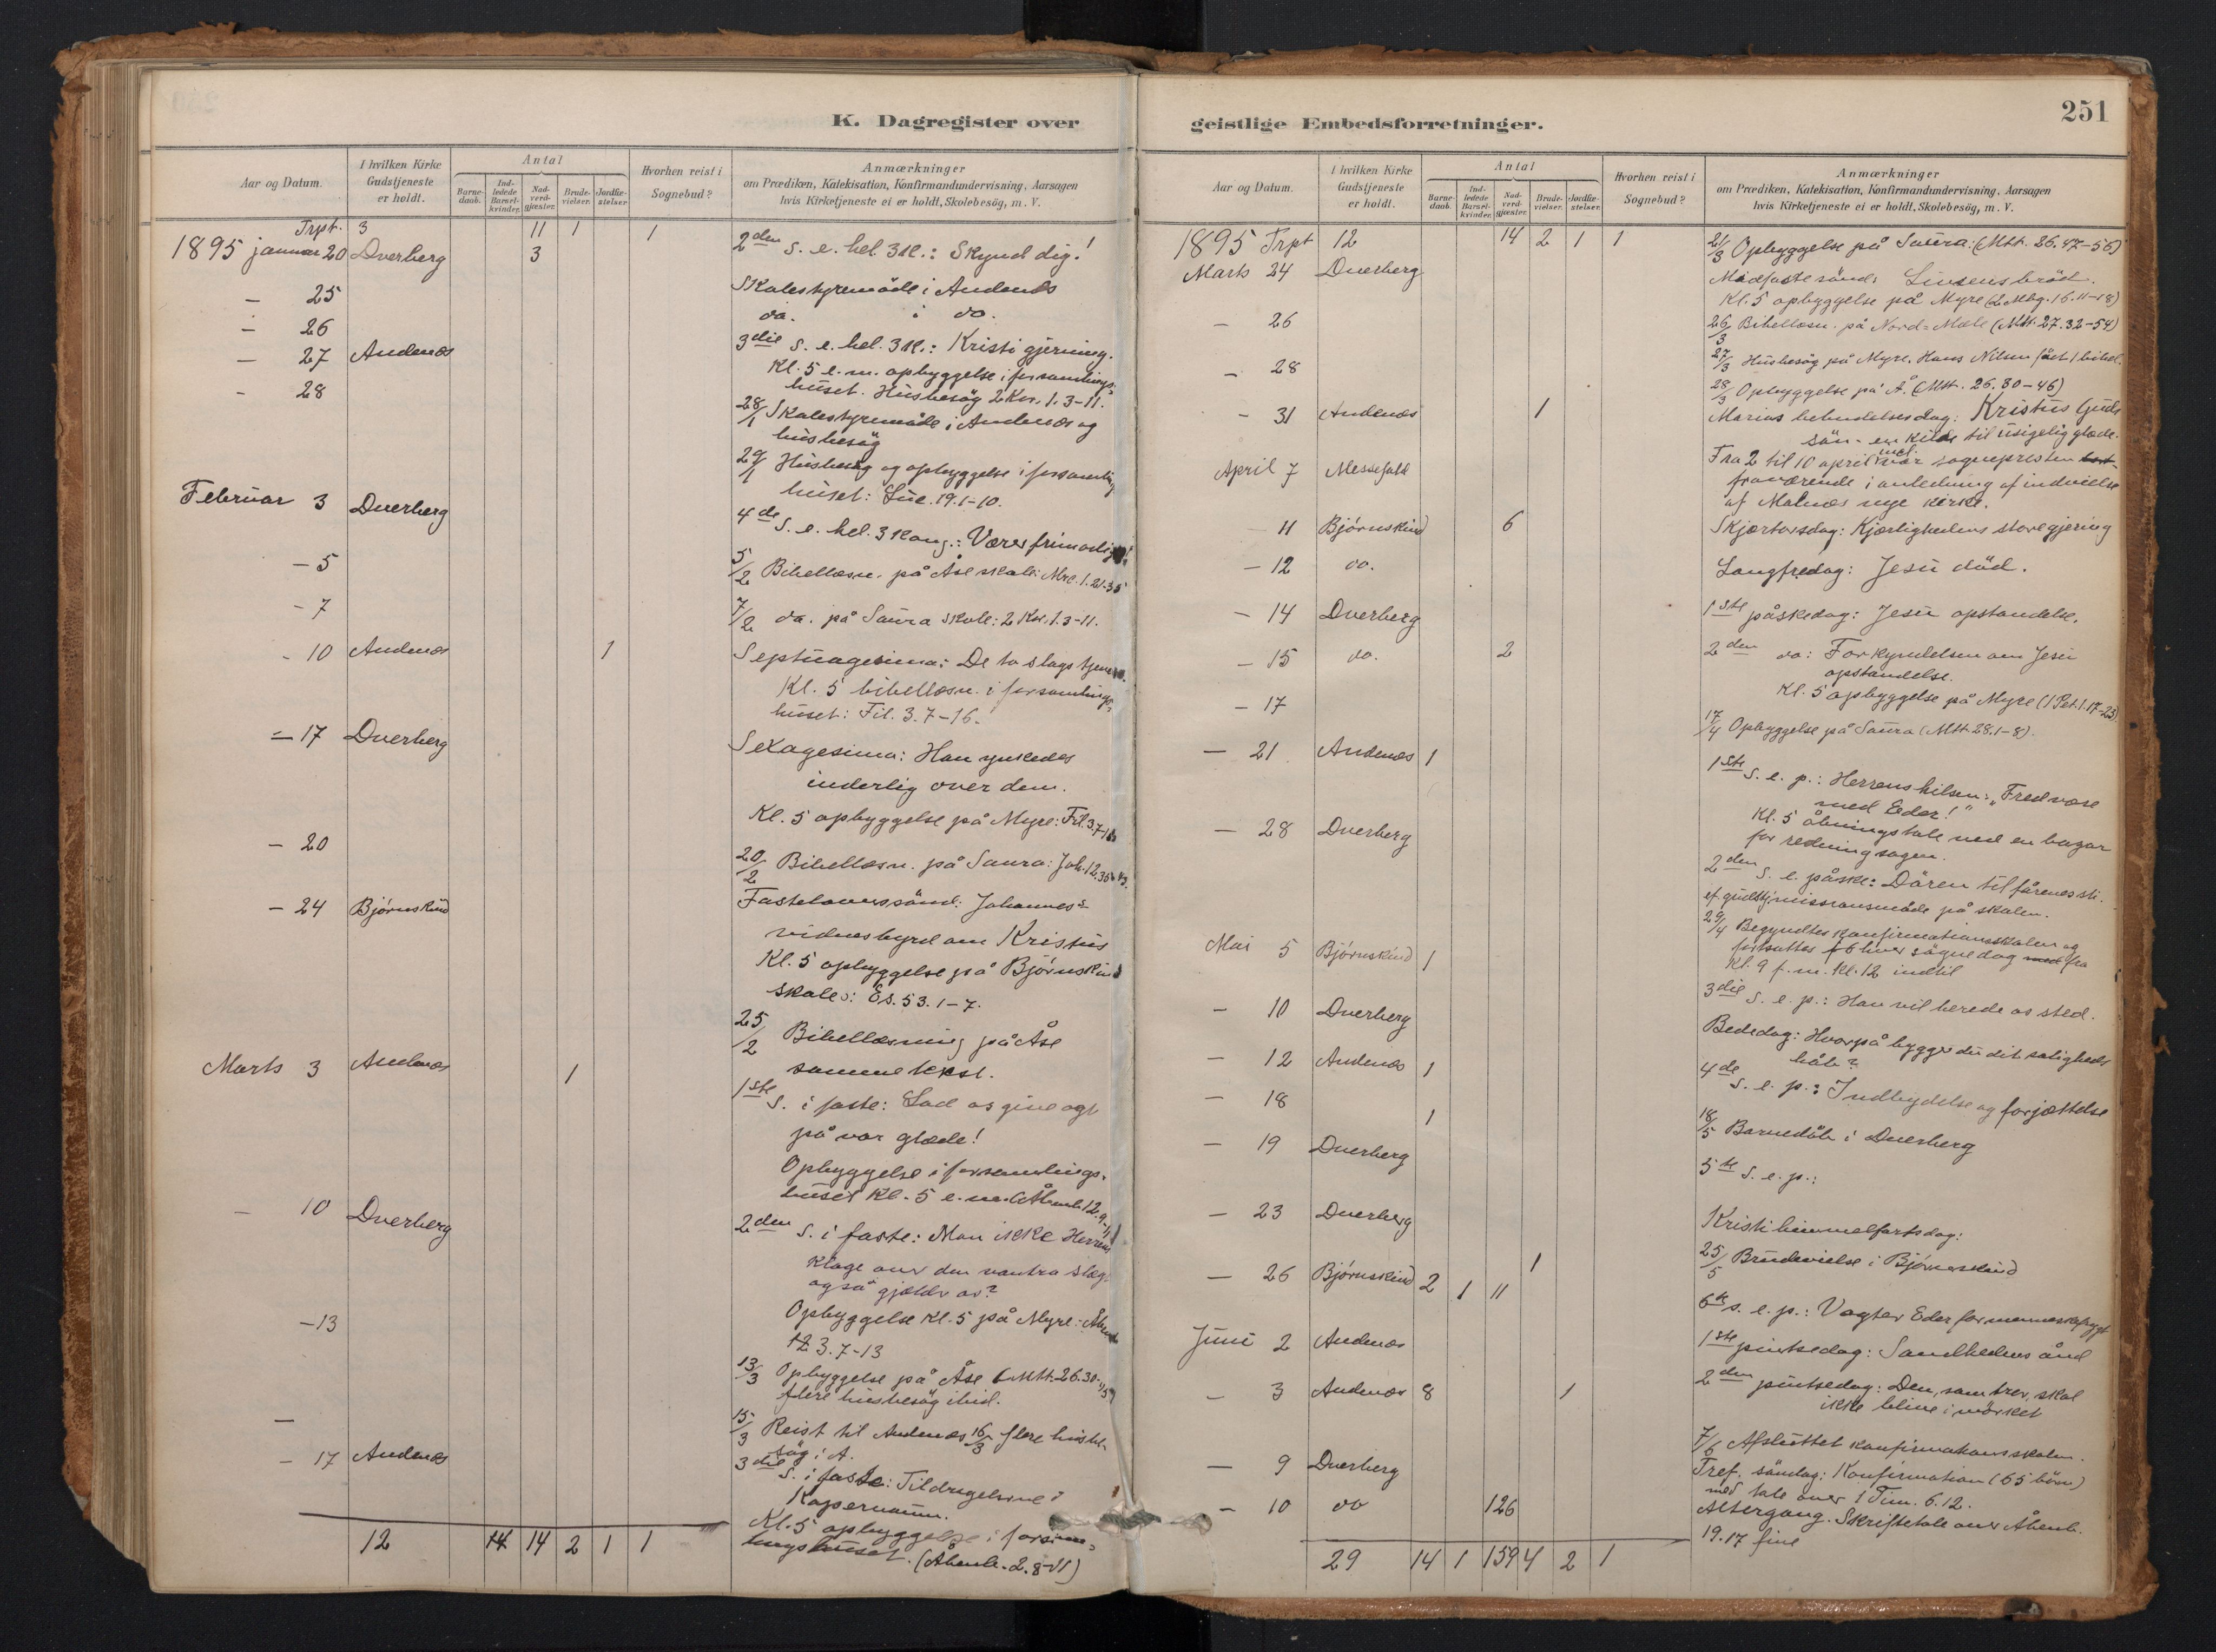 K. Dagregister over
Aar og Datum.
I hvilken Kirke
Gudstjeneste
er holdt.
Antal
Barne-
daab.
Ind-
ledede
Barsel-
kvinder.
Nad-
verd-
gjæster.
Brude-
vielser.
Jordfæ-
stelser.
Hvorhen reist i
Sognebud?
Anmærkninger
om Prædiken, Katekisation, Konfirmandundervisning, Aarsagen
hvis Kirketjeneste ei er holdt, Skolebesög, m. V.
Trpt. 3 11 1 1
1895 januar 20 Dverberg 3 2den s. e. hel. 3 k.: Skynd dig!
- 25 Skolestyremöde i Andenæs
- 26 do. i do.
- 27 Andenæs 3die s. e. hel. 3 k.: Kristi gjerning.
Kl. 5 e. m. opbyggelse i forsamlings-
huset. Husbesög 2 Kor. 1. 3-11.
- 28 28/1 Skolestyremöde i Andenæs og
husbesög
29/1 Husbesög og opbyggelse i forsamlings
huset: Luc. 19. 1-10.
Februar 3 Dverberg 4de s. e. hel. 3 kong.: Værer frimodige!
- 5 5/2 Bibellæsn. på Åse skole: Mrc. 1. 21-35
- 7 7/2 do. på Saura skole: 2 Kor. 1. 3-11.
- 10 Andenæs 1 Septuagesima: De to slags tjenere.
Kl. 5 bibellæsn. i forsamlings-
huset: Fil. 3. 7-16.
- 17 Dverberg Sexagesima: Han ynkedes
inderlig over dem.
Kl. 5 opbyggelse på Myre: Fil. 3. 7-16
- 20 20/2 Bibellæsn. på Saura: Joh. 12. 36-43.
- 24 Björnskind Fastelavnssönd: Johannes's
vidnesbyrd om Kristus
Kl. 5 opbyggelse på Björnskind
skole: Es. 53. 1-7.
25/2 Bibellæsning på Åse
samme tekst.
Marts 3 Andenæs 1 1ste s. i faste: Lad os give agt
på vor glæde!
Opbyggelse i forsamlings-
huset kl. 5 e. m. (Åbenb. 12. 9-11
- 10 Dverberg 2den s. i faste: Mon ikke Herrens
klage over den vantro slægt
også gjælder os?
Opbyggelse kl. 5 på Myre: Åbenb
3. 7-13
- 13 13/3 Opbyggelse på Åse (Mtt. 26. 30-
flere husbesög ibid.
- 15/3 Reist til Andenæs 16/3 flere husbe-
sög i A.
- 17 Andenæs 3die s. i faste: Tildragelserne i
Kapernaum.
Kl. 5 opbyggelse i forsam-
lingshuset. (Åbenb. 2. 8-11)
12 14 14 2 1 1
geistlige Embedsforretninger.
251
Aar og Datum.
I hvilken Kirke
Gudstjeneste
er holdt.
Antal
Barne-
daab.
Ind-
ledede
Barsel-
kvinder.
Nad-
verd-
gjæster.
Brude-
vielser.
Jordfæ-
stelser.
Hvorhen reist i
Sognebud?
Anmærkninger
om Prædiken, Katekisation, Konfirmandundervisning, Aarsagen
hvis Kirketjeneste ei er holdt, Skolebesög, m. V.
1895 Trpt 12 14 2 1 1 21/3 Opbyggelse på Saura: (Mtt. 26. 47-56)
Marts 24 Dverberg Midfaste sönd: Livsens bröd.
Kl. 5 opbyggelse på Myre (2 Mbg. 16. 11-18)
- 26 26/3 Bibellæsn. på Nord-Mæle (Mtt. 27. 32-54)
27/3 Husbesög på Myre. Hans Nilsen fået 1 bibel.
- 28 28/3 Opbyggelse på Å. (Mtt. 26. 30-46)
- 31 Andenæs 1 Mariæ bebudelsesdag: Kristus Guds
sön - en kilde til usigelig glæde.
April 7 Messefald Fra 2 til 10 april incl. var sognepresten
fraværende i anledning af indvielse
af Malnæs nye kirke.
11 Björnskind 6 Skjærtorsdag: Kjærlighedens store gjerning
- 12 do. Langfredag: Jesu död.
- 14 Dverberg 1ste påskedag: Jesu opstandelse.
- 15 do. 2 2den do: Forkyndelsen om Jesu
opstandelse.
Kl. 5 opbyggelse på Myre (1 Pet. 1. 17-23)
- 17 17/4 Opbyggelse på Saura (Mtt. 28. 1-8).
- 21 Andenæs 1 1ste s. e. p.: Herrens hilsen: "Fred være
med Eder!"
Kl. 5 åbningstale ved en bazar
for redningsagen.
- 28 Dverberg 2den s. e. påske: Dören til fårenes sti.
ef. gudstj. missionsmöde på skolen.
29/4 Begyndtes konfirmationsskolen og
fortsattes hver sögnedag fra
kl. 9 f. m. - kl. 12 indtil
Mai 5 Björnskind 1 3die s. e. p.: Han vil berede os sted.
- 10 Dverberg Bededag: Hvorpå bygger du dit saligheds
håb?
- 12 Andenæs 1 4de s. e. p.: Indbydelse og forjættelse
- 18 1 18/5 Barnedåb i Dverberg
- 19 Dverberg 5te s. e. p.:
- 23 Dverberg Kristi himmelfartsdag:
1 25/5 Brudevielse i Björnskind
- 26 Björnskind 2 1 11 6te s. e. p.: Vogter Eder for menneskefrygt
Juni 2 Andenæs 1ste pintsedag: Sandhedens ånd
- 3 Andenæs 8 1 2den pintsedag: Den, som tror, skal
ikke blive i mörket
7/6 Afsluttet konfirmationsskolen.
- 9 Dverberg Tref. söndag: Konfirmation (65 börn)
med tale over 1 Tim. 6. 12.
- 10 do 126 Altergang. Skriftetale over Åbenb.
19. 17 fine
29 14 1 159 4 2 1